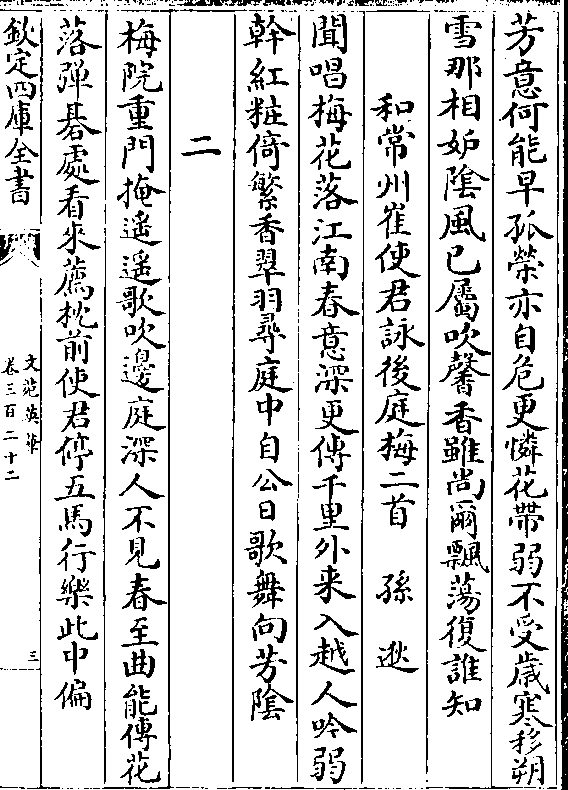 芳意何能早孤榮亦自危更憐花帶弱不受歳寒移朔
雪那相妒陰風已屬吹馨香雖尚爾飄蕩復誰知
和常州崔使君詠後庭梅二首　孫逖
聞唱梅花落江南春意深更傳千里外来入越人吟弱
幹紅粧倚繁香翠羽尋庭中自公日歌舞向芳陰
二
梅院重門掩遥遥歌吹邊庭深人不見春至曲能傳花
落彈棊處看來薦枕前使君停五馬行樂此中偏
欽定四庫全書
文苑英華
卷三百二十二
三